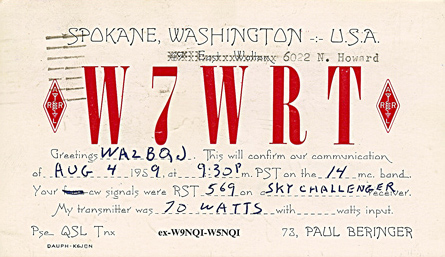 SPOKANE, WASHINGTON -:- U.S.A.
6022 N. Howard
W7WRT
ARRL ARRL
Greetings WA2BQJ. This will confirm our communication
of AUG 4 1959 at 9:30P m. PST on the 14 mc. band.
Your cw signals were RST 569 on a SKY CHALLENGER receiver.
My transmitter was 70 WATTS with watts input.
Pse QSL Tnx ex-W9NQI-W5NQI 73, PAUL BERINGER
DAUPH-K6JCN